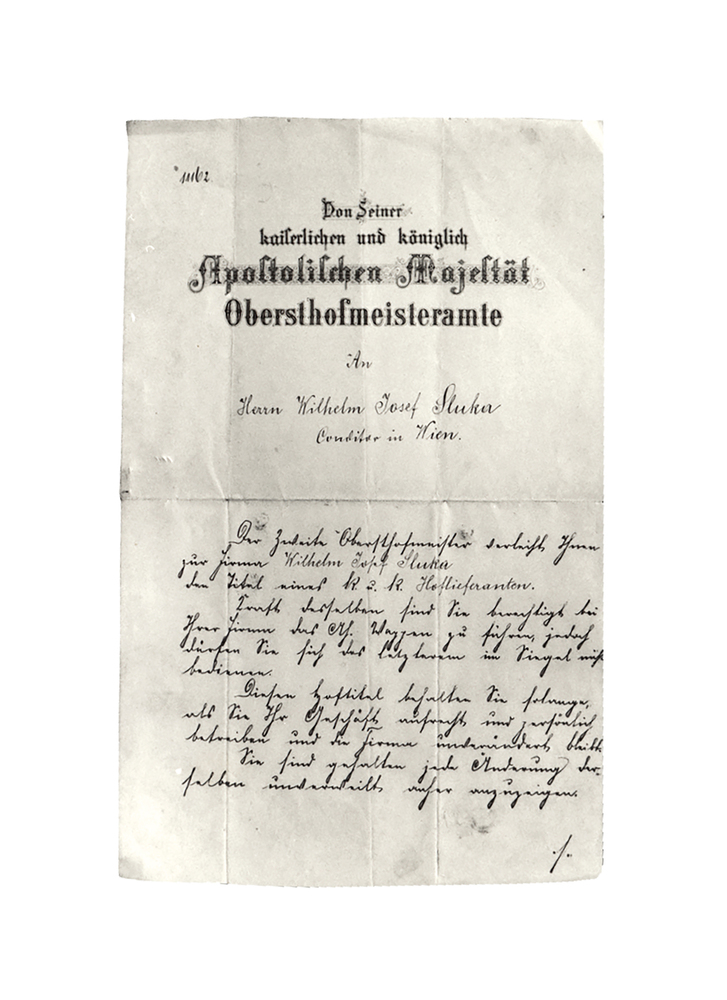 Von Seiner
kaiserlichen und königlich
Apostolischen Majestät
Obersthofmeisteramte
An
Herrn Wilhelm Josef Sluka
Conditor in Wien.
Der Zweite Obersthofmeister verleiht Ihnen
zur Firma Wilhelm Josef Sluka
den Titel eines k. u. k. Hoflieferanten.
Kraft desselben sind Sie berechtigt bei
Ihrer Firma das Ah. Wappen zu führen, jedoch
dürfen Sie sich des letzterem im Siegel nicht
bedienen.
Diesen Hoftitel behalten Sie solange,
als Sie Ihr Geschäft aufrecht und persönlich
betreiben und die Firma unverändert bleibt.
Sie sind gehalten jede Änderung der-
selben unverweilt anher anzuzeigen.
./.